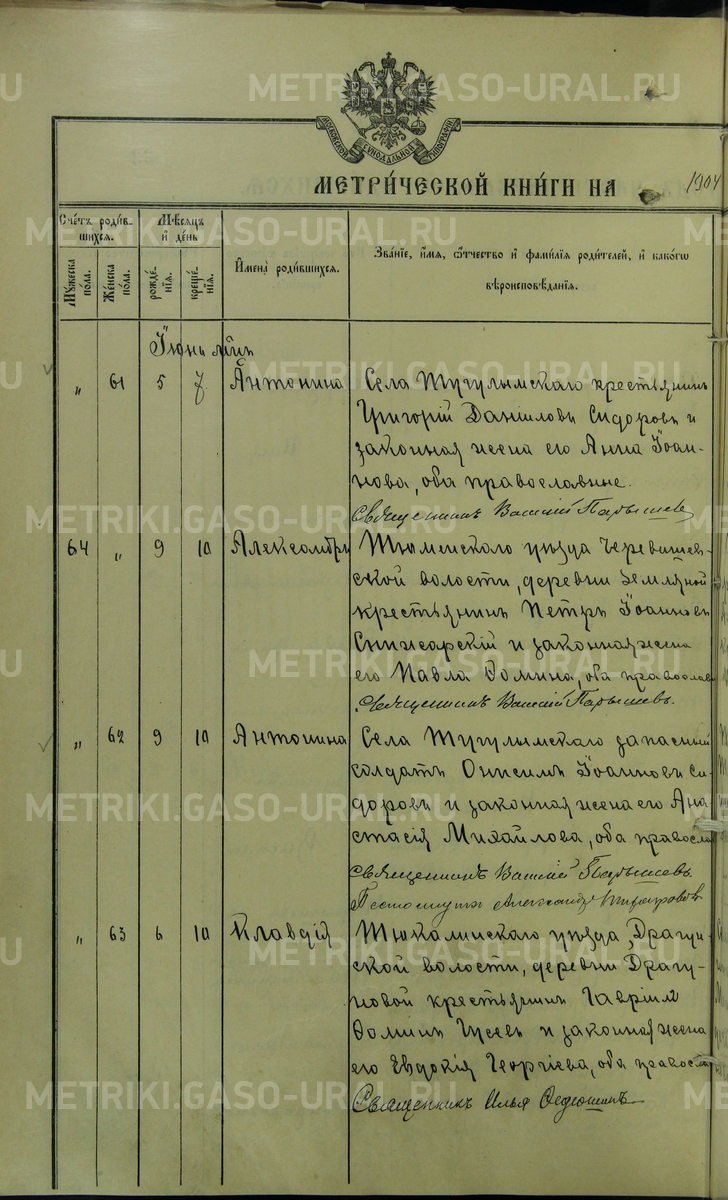 METRIKI.GASO-URAL.RU
МОСКОВСКОЙ СѴНОДАЛЬНОЙ ТИПОГРАФІИ
МЕТРИ́ЧЕСКОЙ КНИ́ГИ НА 1904
Сче́тъ роди́вшихся.
Мѣ́сяцъ и де́нь
Имена̀ роди́вшихся.
Зва́нїе, и҆́мя, ѻ҆́тчество и҆ фами́лїя роди́телей, и҆ како́гѡ вѣроисповѣ́данїя.
Мꙋ́жеска по́ла.
Же́нска по́ла.
рожде́нїя.
креще́нїя.
Іюнь мѣс.
„ 61 5 7 Антонина
Села Тугулымскаго крестьянинъ
Григорій Даниловъ Сидоровъ и
законная жена его Анна Іоан-
нова, оба православные.
Священникъ Василій Парышев
64 „ 9 10 Александръ
Тюменскаго уѣзда Червишев-
ской волости, деревни Земляной
крестьянинъ Петръ Іоанновъ
и законная жена
его Павла Ѳомина, оба православ
Священникъ Василій Парышевъ.
„ 62 9 10 Антонина
Села Тугулымскаго запасный
солдатъ Онисимъ Іоанновъ Си-
доровъ и законная жена его Ана
стасія Михайлова, оба правосла
Священникъ Василій Парышевъ.
Александръ
„ 63 6 10 Клавдія
Тюкалинскаго уѣзда, Драгун
ской волости, деревни Драгу-
новой крестьянинъ Гавріилъ
Ѳоминъ Гусевъ и законная жена
его Евдокія Георгіева, оба правосла
Священникъ Илья Федюшинъ